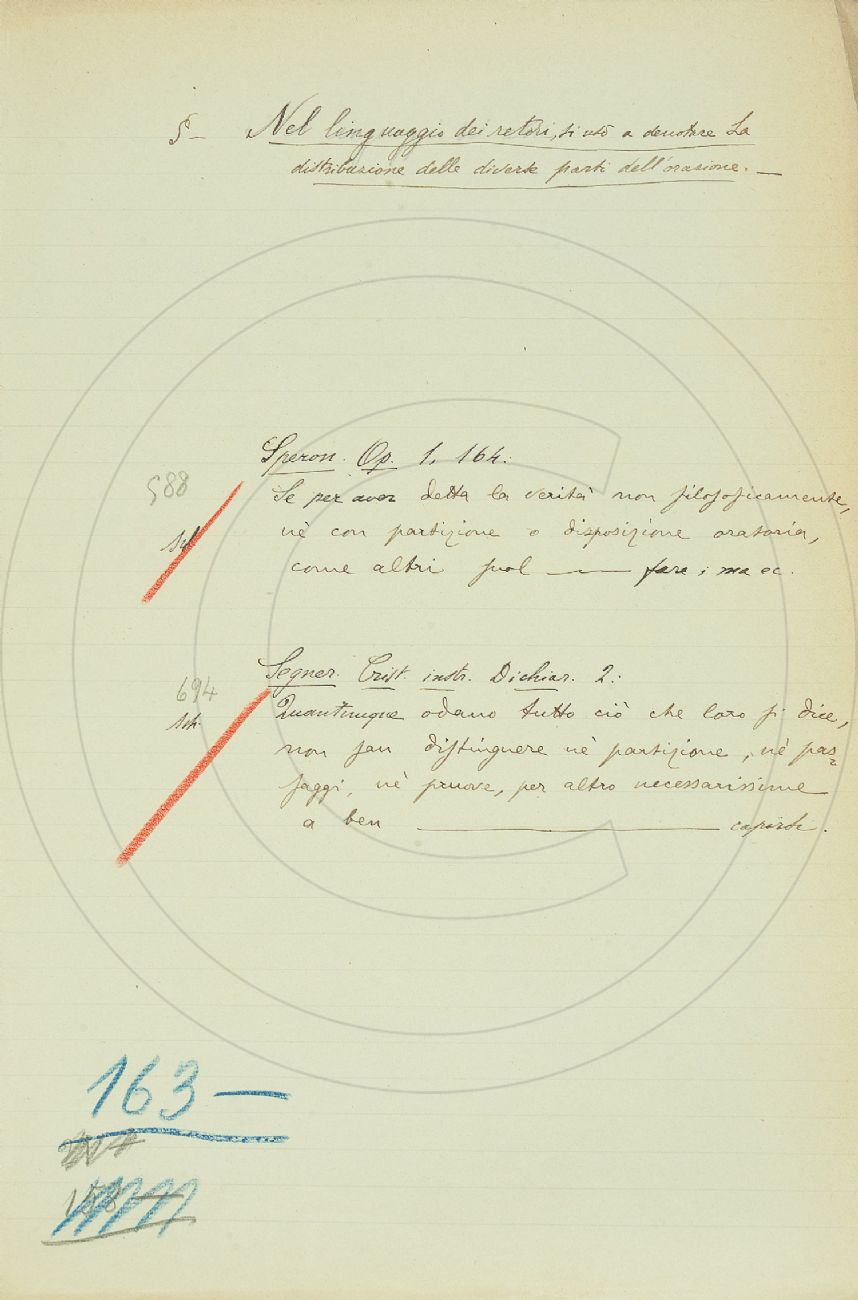 § — Nel linguaggio dei retori, si usò a denotare La
distribuzione delle diverse parti dell'orazione. —
Speron. Op. 1. 164:
588
Se per aver detta la verità non filosoficamente,
nè con partizione o disposizione oratoria,
come altri suol ——— fare; ma ec.
Segner. Crist. instr. Dichiar. 2.:
694
Quantunque odano tutto ciò che loro si dice,
non san distinguere nè partizione, nè pas=
saggi, nè pruove, per altro necessarissime
a ben ——— capirle.
163 —
158